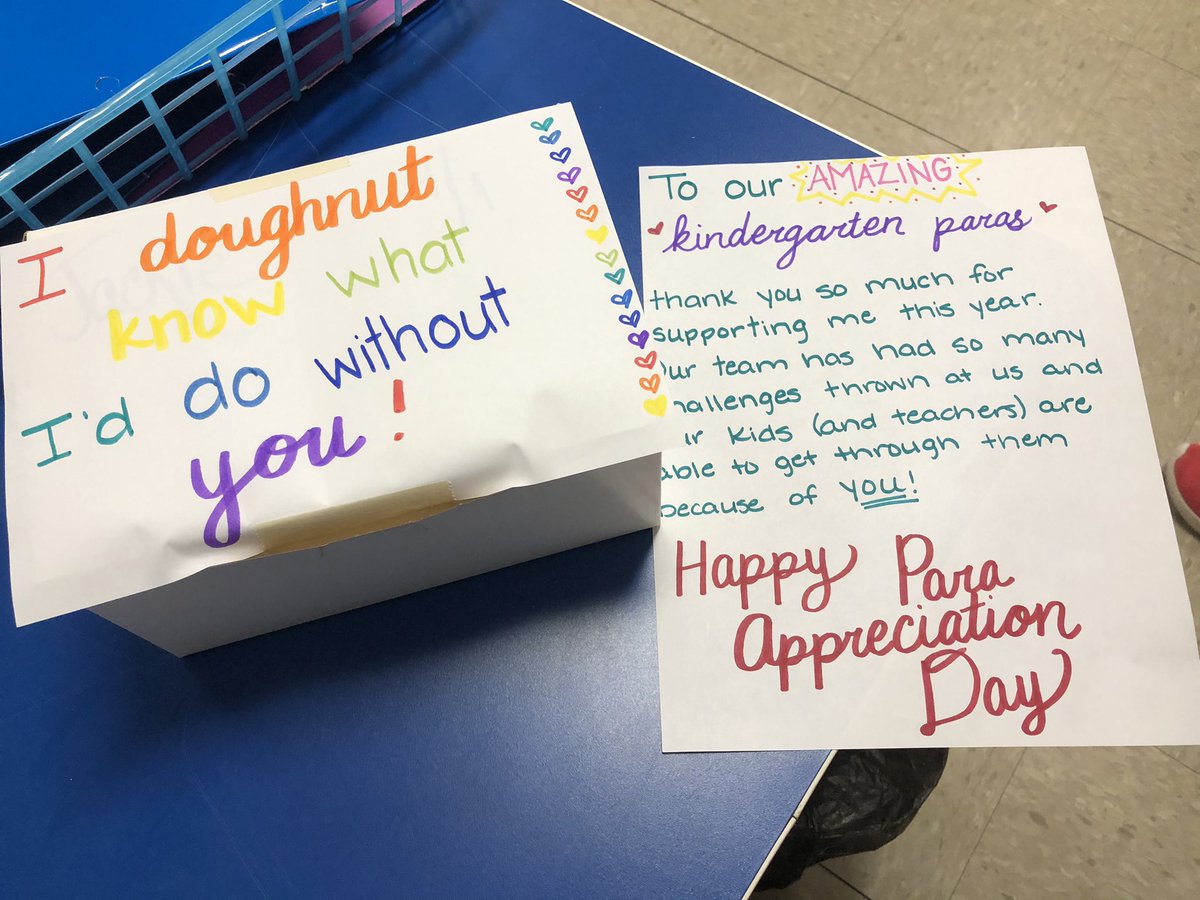 I doughnut
know what
I'd do without
you!
To our AMAZING
kindergarten paras
thank you so much for
supporting me this year.
Our team has had so many
challenges thrown at us and
our kids (and teachers) are
able to get through them
because of you!
Happy Para
Appreciation
Day